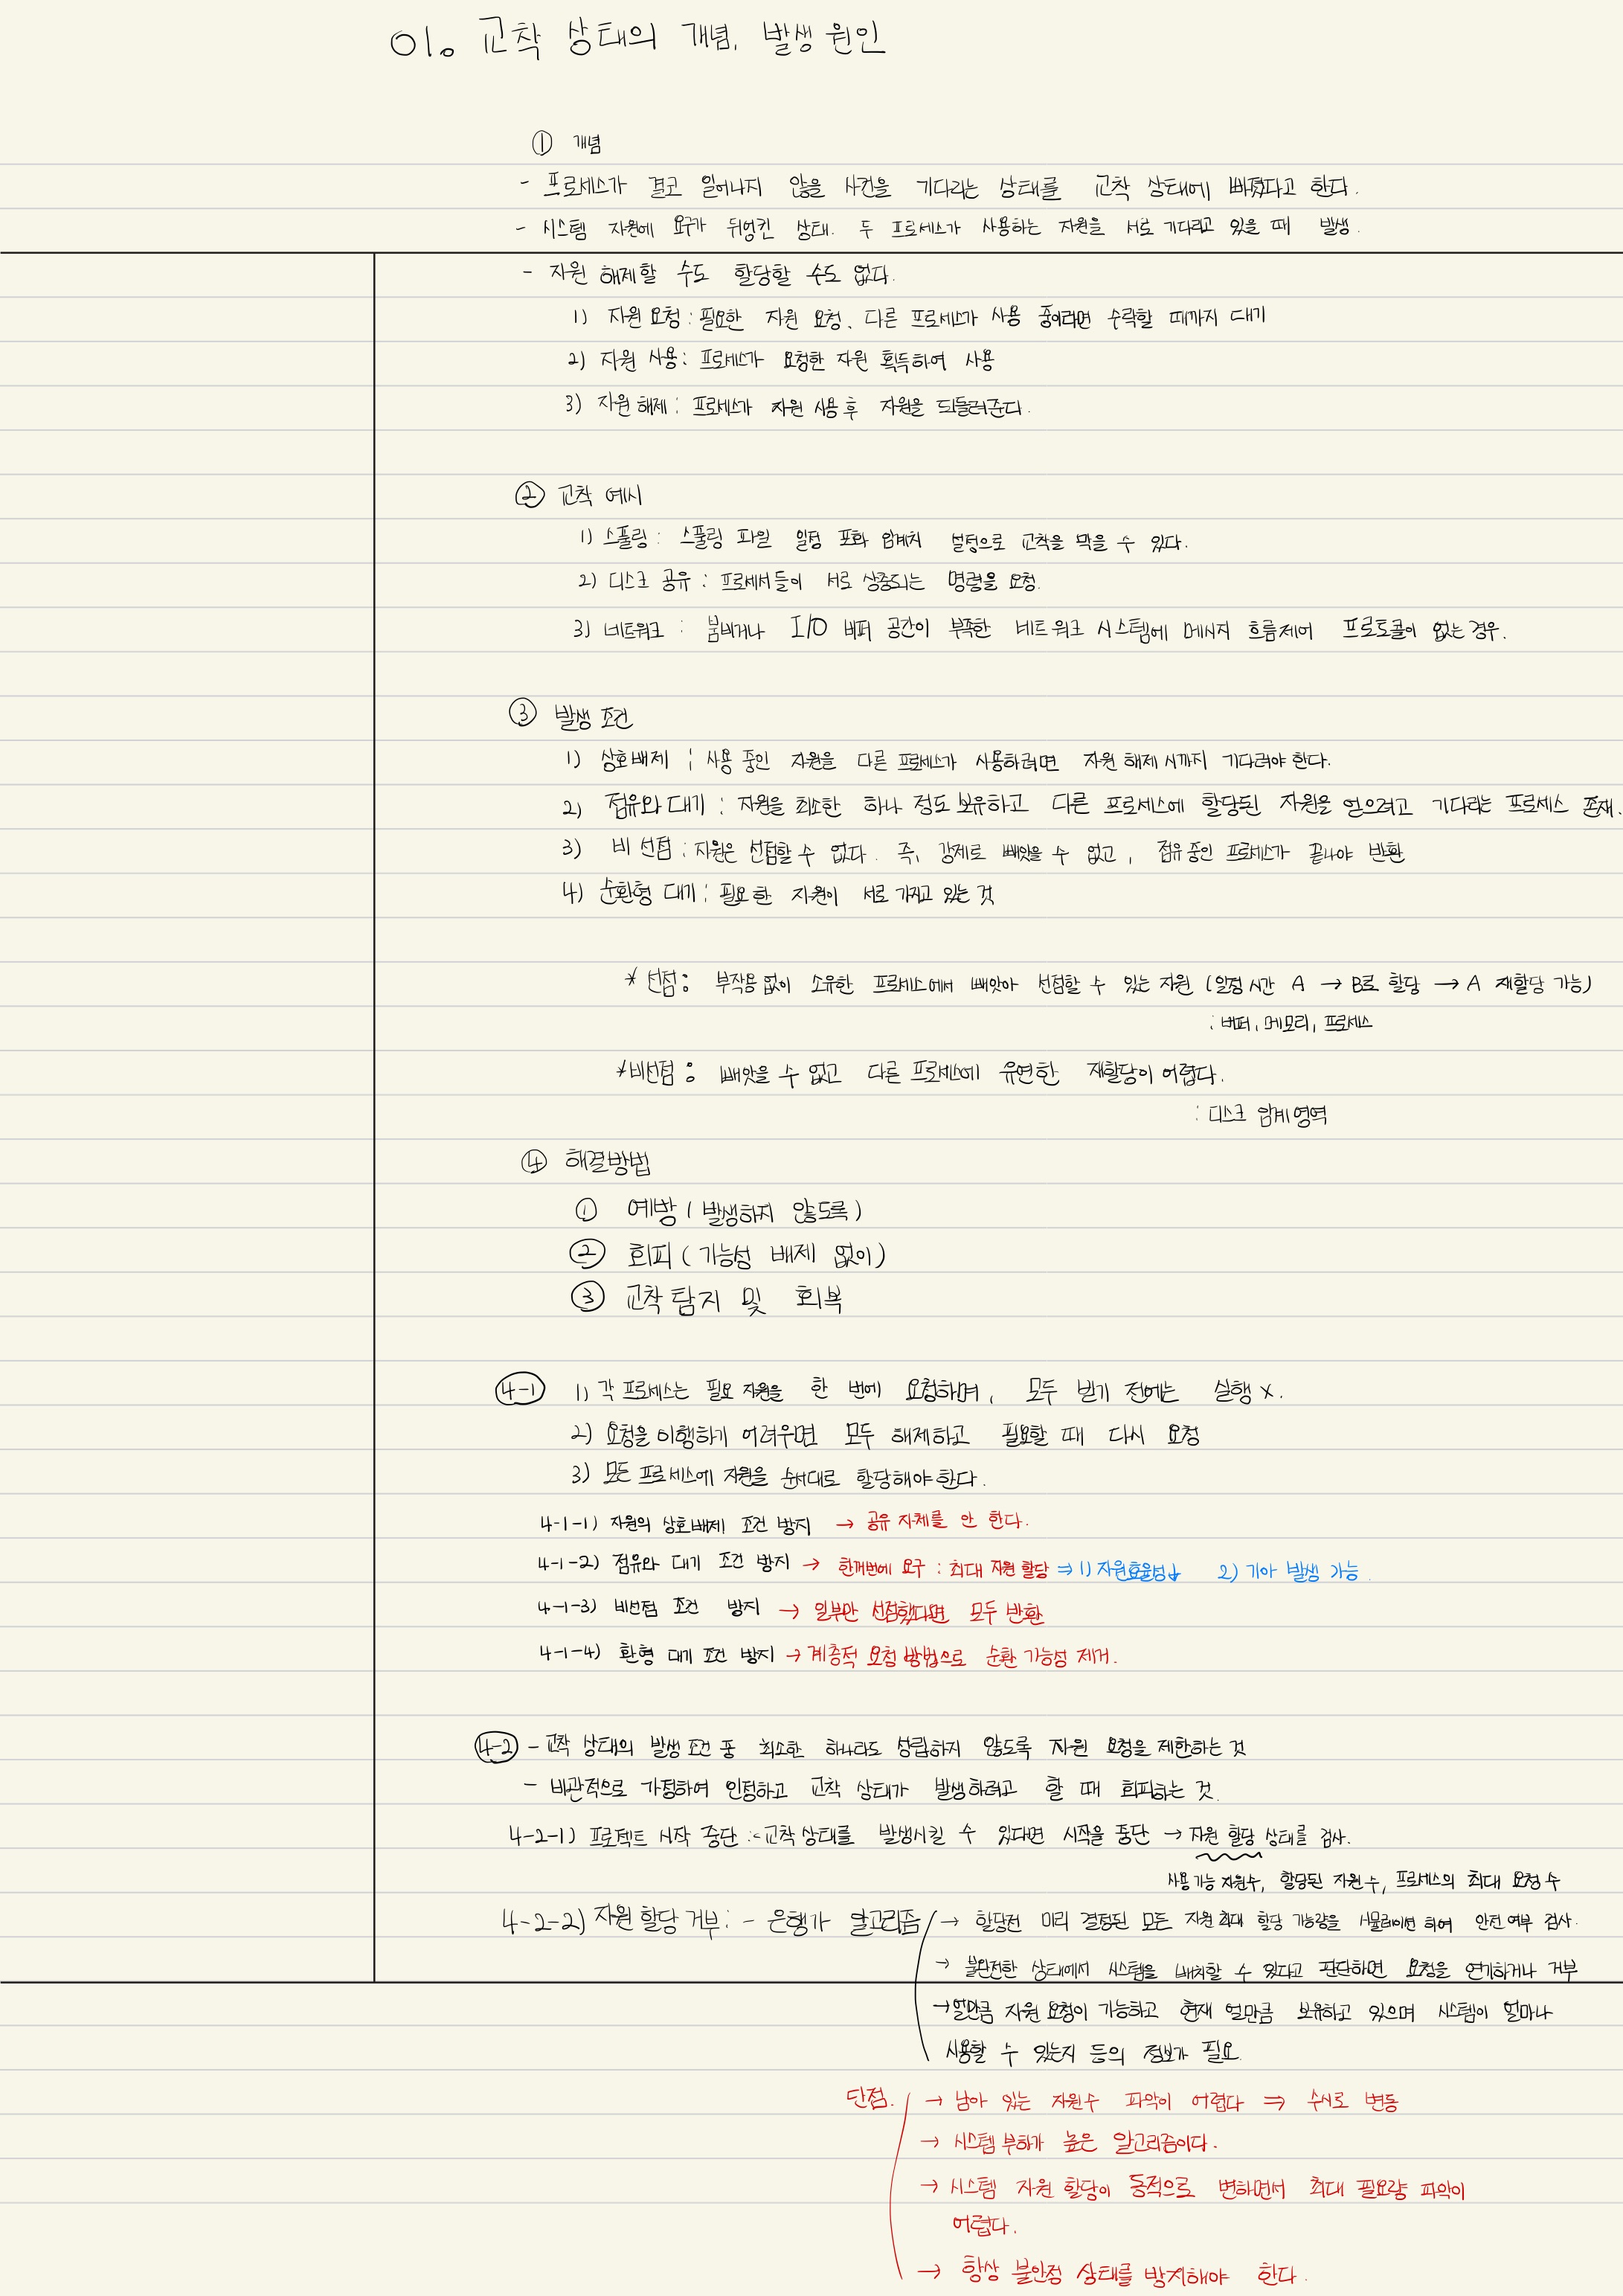 01. 교착 상태의 개념, 발생 원인
① 개념
- 프로세스가 결코 일어나지 않을 사건을 기다리는 상태를 교착 상태에 빠졌다고 한다.
- 시스템 자원에 요구가 뒤엉킨 상태. 두 프로세스가 사용하는 자원을 서로 기다리고 있을 때 발생.
- 자원 해제할 수도 할당할 수도 없다.
1) 자원 요청 : 필요한 자원 요청, 다른 프로세스가 사용 중이라면 수락할 때까지 대기
2) 자원 사용 : 프로세스가 요청한 자원 획득하여 사용
3) 자원 해제 : 프로세스가 자원 사용 후 자원을 되돌려준다.
② 교착 예시
1) 스풀링 : 스풀링 파일 일정 포화 임계치 설정으로 교착을 막을 수 있다.
2) 디스크 공유 : 프로세서들이 서로 상충되는 명령을 요청.
3) 네트워크 : 붐비거나 I/O 버퍼 공간이 부족한 네트워크 시스템에 메시지 흐름제어 프로토콜이 없는 경우.
③ 발생 조건
1) 상호배제 : 사용 중인 자원을 다른 프로세스가 사용하려면 자원 해제 시까지 기다려야 한다.
2) 점유와 대기 : 자원을 최소한 하나 정도 보유하고 다른 프로세스에 할당된 자원을 얻으려고 기다리는 프로세스 존재.
3) 비 선점 : 자원은 선점할 수 없다. 즉, 강제로 빼앗을 수 없고, 점유 중인 프로세스가 끝나야 반환
4) 순환형 대기 : 필요한 자원이 서로 가지고 있는 것
* 선점 : 부작용 없이 소유한 프로세스에서 빼앗아 선점할 수 있는 자원 (일정 시간 A → B로 할당 → A 재할당 가능)
: 버퍼, 메모리, 프로세스
* 비선점 : 빼앗을 수 없고 다른 프로세스에 유연한 재할당이 어렵다.
: 디스크 임계영역
④ 해결방법
① 예방 (발생하지 않도록)
② 회피 (가능성 배제 없이)
③ 교착 탐지 및 회복
4-1 1) 각 프로세스는 필요 자원을 한 번에 요청하며, 모두 받기 전에는 실행 x.
2) 요청을 이행하기 어려우면 모두 해제하고 필요할 때 다시 요청
3) 모든 프로세스에 자원을 순서대로 할당해야 한다.
4-1-1) 자원의 상호배제 조건 방지 → 공유 자체를 안 한다.
4-1-2) 점유와 대기 조건 방지 → 한꺼번에 요구 : 최대 자원 할당 ⇒ 1) 자원효율성↓ 2) 기아 발생 가능.
4-1-3) 비선점 조건 방지 → 일부만 선점했다면 모두 반환
4-1-4) 환형 대기 조건 방지 → 계층적 요청 방법으로 순환 가능성 제거.
4-2 - 교착 상태의 발생 조건 중 최소한 하나라도 성립하지 않도록 자원 요청을 제한하는 것
- 비관적으로 가정하여 인정하고 교착 상태가 발생하려고 할 때 회피하는 것.
4-2-1) 프로젝트 시작 중단 :- 교착 상태를 발생시킬 수 있다면 시작을 중단 → 자원 할당 상태를 검사.
사용 가능 자원수, 할당된 자원 수, 프로세스의 최대 요청 수
4-2-2) 자원 할당 거부 : - 은행가 알고리즘 → 할당전 미리 결정된 모든 자원 최대 할당 가능량을 시뮬레이션 하여 안전 여부 검사.
→ 불안전한 상태에서 시스템을 배치할 수 있다고 판단하면 요청을 연기하거나 거부
→ 얼만큼 자원 요청이 가능하고 현재 얼만큼 보유하고 있으며 시스템이 얼마나
사용할 수 있는지 등의 정보가 필요.
단점. → 남아 있는 자원수 파악이 어렵다 ⇒ 수시로 변동
→ 시스템 부하가 높은 알고리즘이다.
→ 시스템 자원 할당이 동적으로 변하면서 최대 필요량 파악이
어렵다.
→ 항상 불안정 상태를 방지해야 한다.